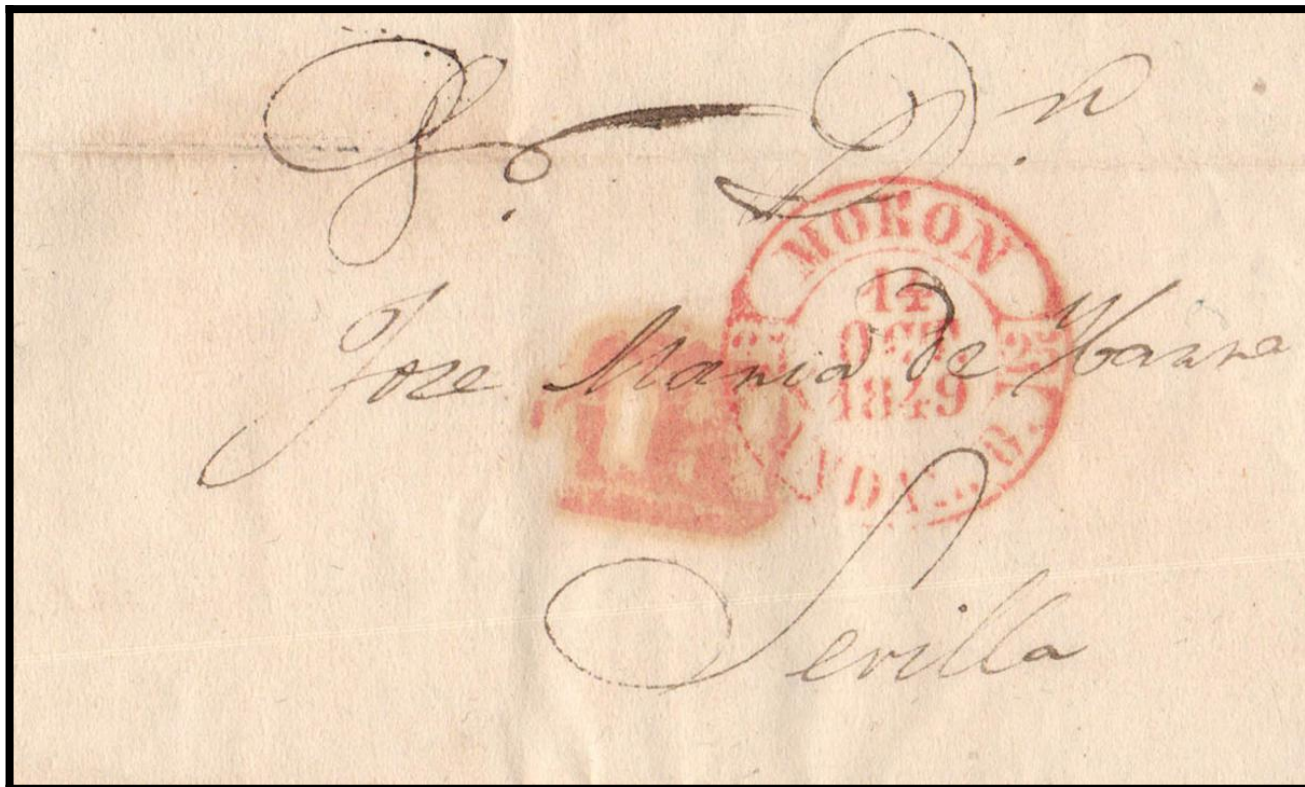 Sr. Dn
Jose Maria de Ybarra
Sevilla
MORON
14
OCT
1849